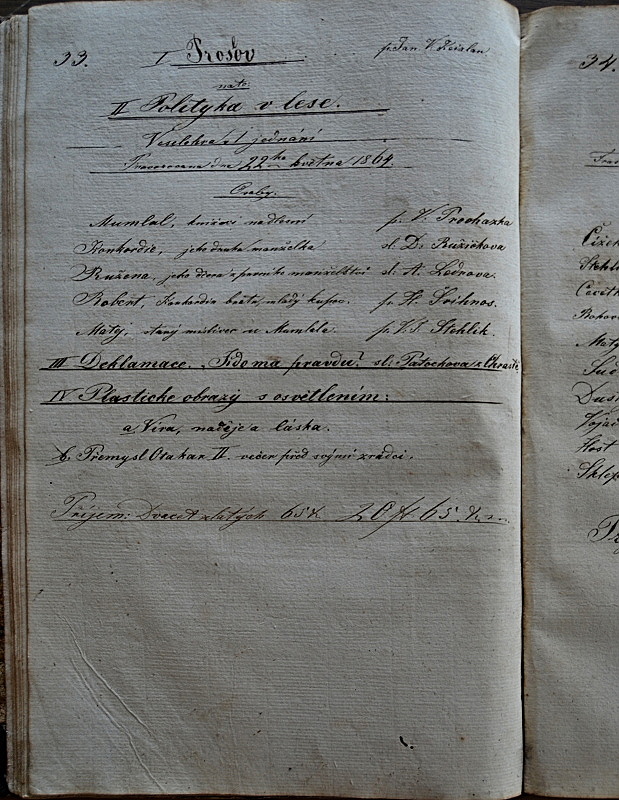 33. I Prosov p. Jan V.
nato:
II Polityka v lese.
Veselohra 1 jednání
Provozována dne 22ho května 1864.
Osoby:
Mumlal, knížecí nadlesní p. V. Prochazka
Konkordie, jeho druha manželka sl. D. Ružičkova
Ružena, jeho dcera z prvního manželství sl. A. Lednova.
Robert, Konkordie bratr, mladý kupec. p. H.
Matý, starý myslivec u Mumlala. p. V. F. Stehlik.
III Deklamace. "Kdo ma pravdu? sl. Patochova z Chrasti
IV Plasticke obrazy s osvětlením:
a Víra, naděje a láska.
b. Přemysl Otakar II. večer před svými zradci.
Příjem: Dvacet zlatých 65 k. 20 f 65 k
34.
Stehl
Rohov
Matý
Duš
Vojác
Host
Sklep